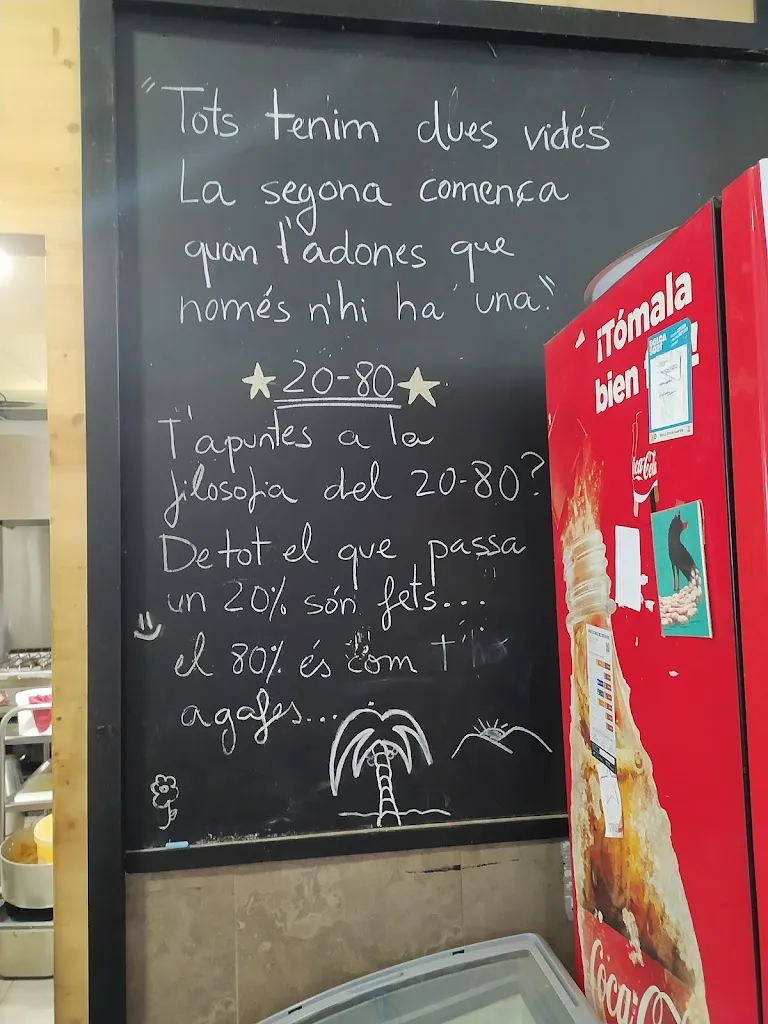 "Tots tenim dues vides
La segona comença
quan t'adones que
només n'hi ha una."
20-80
T'apuntes a la
filosofia del 20-80?
De tot el que passa
un 20% són fets...
el 80% és com t'ho
agafes...
¡Tómala
bien
Coca-Cola
Coca-Co